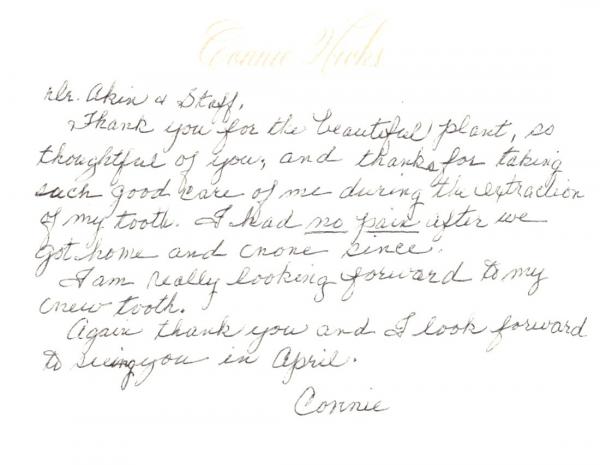 Connie Hicks
Dr. Akin & Staff,
Thank you for the beautiful plant, so
thoughtful of you, and thanks for taking
such good care of me during the extraction
of my tooth. I had no pain after we
got home and none since.
I am really looking forward to my
new tooth.
Again thank you and I look forward
to seeing you in April.
Connie